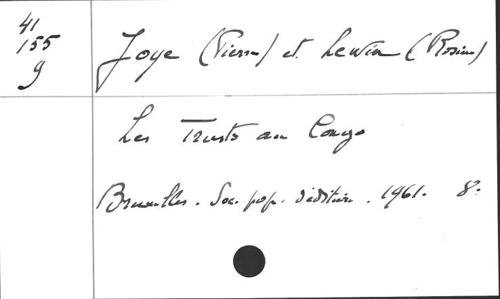 41
155
9
Joye (Pierre) et Lewin (Rosine)
Les Trusts au Congo
Bruxelles. Soc. pop. d'édition. 1961. 8°